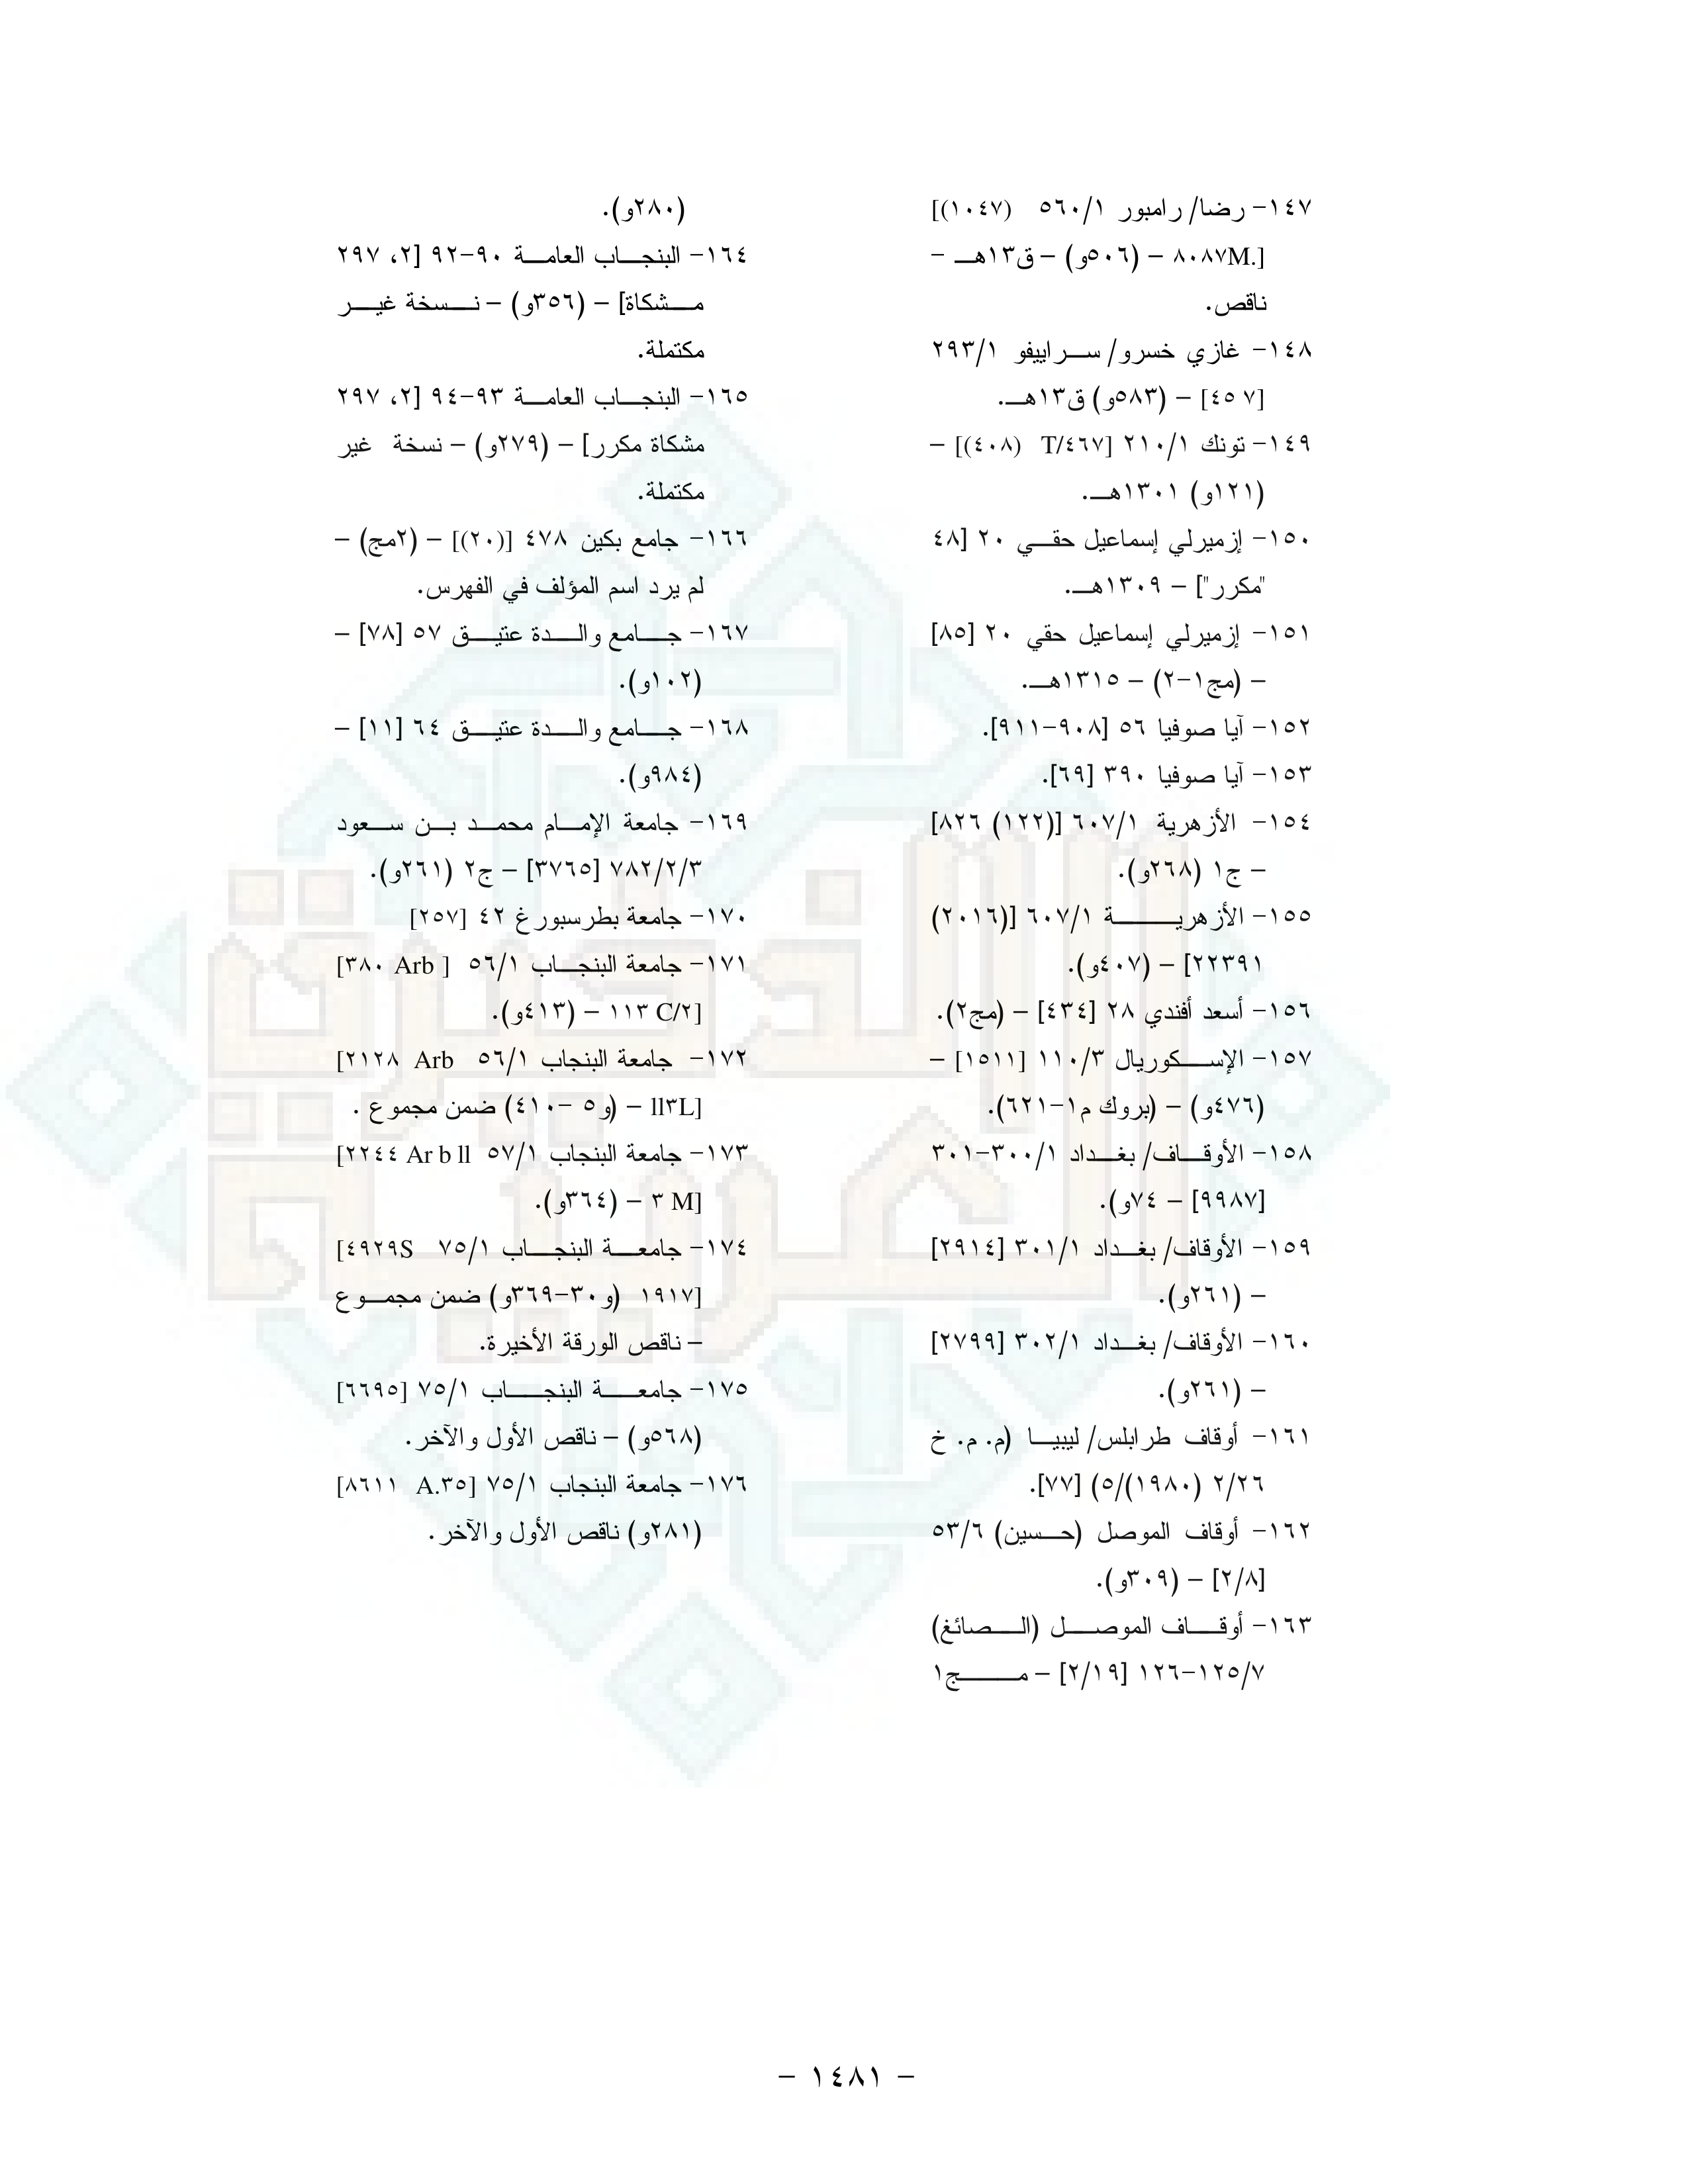 ١٤٧- رضا/ رامبور ٥٦٠/١ (١٠٤٧)]
[.٨٠٨٧M – (٥٠٦و) – ق١٣هـ –
ناقص.
١٤٨- غازي خسرو/ سراييفو ٢٩٣/١
[٤٥٧] – (٥٨٣و) ق١٣هـ.
١٤٩- تونك ٢١٠/١ [T/٤٦٧ (٤٠٨)] –
(١٢١و) ١٣٠١هـ.
١٥٠- إزميرلي إسماعيل حقي ٢٠ [٤٨
"مكرر"] – ١٣٠٩هـ.
١٥١- إزميرلي إسماعيل حقي ٢٠ [٨٥]
– (مج١-٢) – ١٣١٥هـ.
١٥٢- آيا صوفيا ٥٦ [٩٠٨-٩١١].
١٥٣- آيا صوفيا ٣٩٠ [٦٩].
١٥٤- الأزهرية ٦٠٧/١ [(١٢٢) ٨٢٦]
– ج١ (٢٦٨و).
١٥٥- الأزهرية ٦٠٧/١ [(٢٠١٦)
٢٢٣٩١] – (٤٠٧و).
١٥٦- أسعد أفندي ٢٨ [٤٣٤] – (مج٢).
١٥٧- الإسكوريال ١١٠/٣ [١٥١١] –
(٤٧٦و) – (بروك م١-٦٢١).
١٥٨- الأوقاف/ بغداد ٣٠٠/١-٣٠١
[٩٩٨٧] – ٧٤و).
١٥٩- الأوقاف/ بغداد ٣٠١/١ [٢٩١٤]
– (٢٦١و).
١٦٠- الأوقاف/ بغداد ٣٠٢/١ [٢٧٩٩]
– (٢٦١و).
١٦١- أوقاف طرابلس/ ليبيا (م. م. خ
٢/٢٦ (١٩٨٠)/٥) [٧٧].
١٦٢- أوقاف الموصل (حسين) ٥٣/٦
[٢/٨] – (٣٠٩و).
١٦٣- أوقاف الموصل (الصائغ)
١٢٥/٧-١٢٦ [٢/١٩] – مج١
(٢٨٠و).
١٦٤- البنجاب العامة ٩٠-٩٢ [٢، ٢٩٧
مشكاة] – (٣٥٦و) – نسخة غير
مكتملة.
١٦٥- البنجاب العامة ٩٣-٩٤ [٢، ٢٩٧
مشكاة مكرر] – (٢٧٩و) – نسخة غير
مكتملة.
١٦٦- جامع بكين ٤٧٨ [(٢٠)] – (٢مج) –
لم يرد اسم المؤلف في الفهرس.
١٦٧- جامع والدة عتيق ٥٧ [٧٨] –
(١٠٢و).
١٦٨- جامع والدة عتيق ٦٤ [١١] –
(٩٨٤و).
١٦٩- جامعة الإمام محمد بن سعود
٧٨٢/٢/٣ [٣٧٦٥] – ج٢ (٢٦١و).
١٧٠- جامعة بطرسبورغ ٤٢ [٢٥٧]
١٧١- جامعة البنجاب ٥٦/١ [ ٣٨٠ Arb]
[١١٣ C/٢ – (٤١٣و).
١٧٢- جامعة البنجاب ٥٦/١ ٢١٢٨ Arb]
[ll٣L – (و٥ -٤١٠) ضمن مجموع .
١٧٣- جامعة البنجاب ٥٧/١ ٢٢٤٤ Ar b ll]
[٣ M – (٣٦٤و).
١٧٤- جامعة البنجاب ٧٥/١ ٤٩٢٩S]
[١٩١٧ (و٣٠-٣٦٩و) ضمن مجموع
– ناقص الورقة الأخيرة.
١٧٥- جامعة البنجاب ٧٥/١ [٦٦٩٥]
(٥٦٨و) – ناقص الأول والآخر.
١٧٦- جامعة البنجاب ٧٥/١ [٨٦١١ A.٣٥]
(٢٨١و) ناقص الأول والآخر.
الذخيرة
العربية
– ١٤٨١ –